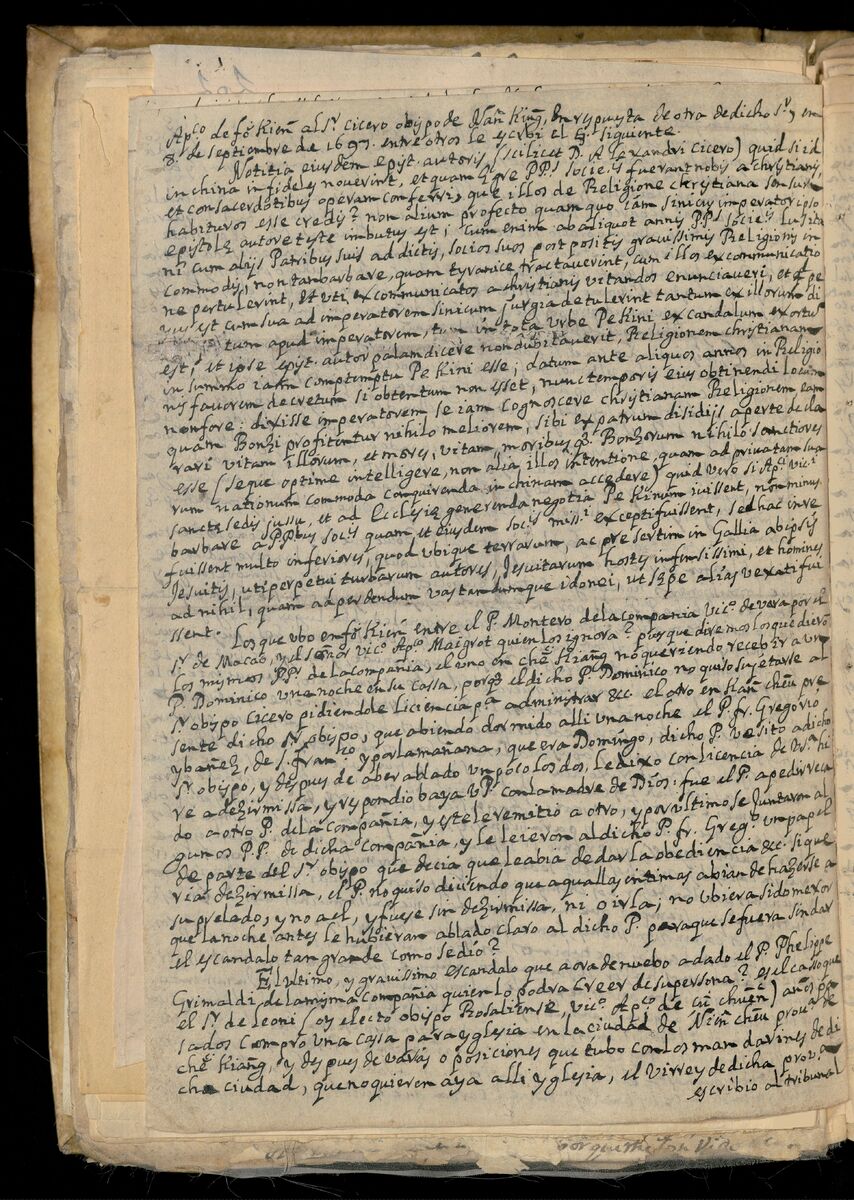 App.co de fő Kień al S.r Cicero obispo de Nañ Kinğ, en respuesta de otra de dicho S.r y en
8. de septiembre de 1697. entre otros le escrbi el §. siguiente.
Notitia eiusdem epist. autoris (scilicet D. Alexandri Cicero) quid si id
in china infideles noverint, et quam ægre PP.s socie.s fuerant nobis a christianis,
et consacerdotibus operam conferri, que illos de Religione christiana sensum
habituros esse credis? non alium profecto quam quo iam sinicus imperator ipso
epistolæ autore teste imbutus est; cum enim ab aliquot annis PP. socie.s Lusita
ni cum alijs Patribus suis addictis, socios suos postpositis gravissimis Religionis in
commodis, non tam barbare, quam tyranice tractaverint, cum illos excommunicatio
ne pertulerint, et uti excommunicatos a christianis vitandos enunciaveri, et
est cum sua ad imperatorem sinicum jurgia detulerint tantum ex illorum di
tum apud imperatorem, tum in tota Urbe Pekini excandalum exortu
est, et ipse epist. autor palam dicere non dubitaverit, Religionem christianam
in summo iam comptemptu Pekini esse; datum ante aliquos annos in Religio
nis favorem decretum si obtentum non esset, nunc temporis eius obtinendi locum
non fore: dixisse imperatorem se iam cognoscere christianam Religionem eam
quam Bonzi profitentur nihilo meliorem, sibi ex patrum disidijs aperte decla
rari vitam illorum, et mores, vitam, moribus q3 Bonzorum nihilo sanctiores
esse (seque optime intelligere, non alia illos intentione, quam ad privatam sua
rum nationum commoda conquirenda in chinam accedere) quid vero si Ap.ci vic.i
sanctæ sedis jussu, et ad Ecclesiæ generenda negotia Pekinum iuissent, non minus
barbare a PP.bus soc.s quam et eiusdem soc.s miss.i excepti fuissent, sed hac in re
fuissent multo inferiores, quod ubique terrarum, ac presertim in Gallia ab ipsis
Jesuitis, uti perpetui turbarum autores, Jesuitarum hostes infensissimi, et homines
ad nihil, quam ad perdendum vastandumque idonei, ut sæpe alias vexati fui
ssent. Los que ubo en fő Kień entre el P. Montero de la compania vic.o de vara por el
S.r de Macao, y el señor vic.o Ap.co Maigrot quien los ignora? pues que diremos los que dierõ
los mismos PP.s de la compañia, el uno en chě Kianğ no queriendo recebir a un
P. Dominico una noche en su cassa, porq3 el dicho P. Dominico no quiso sujetarse al
S.r obispo Cicero pidiendole Liciencia p.a administrar &c. el otro en Kañ cheu pre
sente dicho S.r obispo, que abiendo dormido alli una noche el P. fr. Gregorio
ybañez, de S. Fran.co y por la mañana, que era Domingo, dicho P. visito a dicho
S.r obispo, y despues de aber ablado un poco los dos, le dixo con licencia de V.S.a hi
re a dezir missa, y respondio baya V.P. con la madre de Dios: fue el P. a pedir reca
do a otro P. de la compañia, y este le remitio a otro, y por ultimo se juntaron al
gunos P.P. de dicha compañia, y le leieron al dicho P. fr. Greg.o un papel
de parte del S.r obispo que decia que le abia de dar la obediencia &c. si que
ria dezir missa, el P. no quiso diciendo que aquellas intimas abian de hazerse a
su prelado, y no a el, y fuese sin dezir missa, ni oirla; no ubiera sido mexor
que la noche antes le hubieran ablado claro al dicho P. para que se fuera sin dar
el escandalo tan grande como se dió?
El ultimo, y gravissimo escandalo que aora de nuebo a dado el P. Phelippe
Grimaldi de la misma compañia quien lo podra creer de su persona? es el casso que
el S.r de Leoni (oy electo obispo Rosaliense, vic.o Ap.co de chueń) años pa
sados compro una cassa para yglesia en la ciudad de Niñ cheu prov.a de
chě Kianğ, y despues de varias oposiciones que tubo con los mandarines de di
cha ciudad, que no quieren aya alli yglesia, el Virrey de dicha prov.a
escribio al tribunal